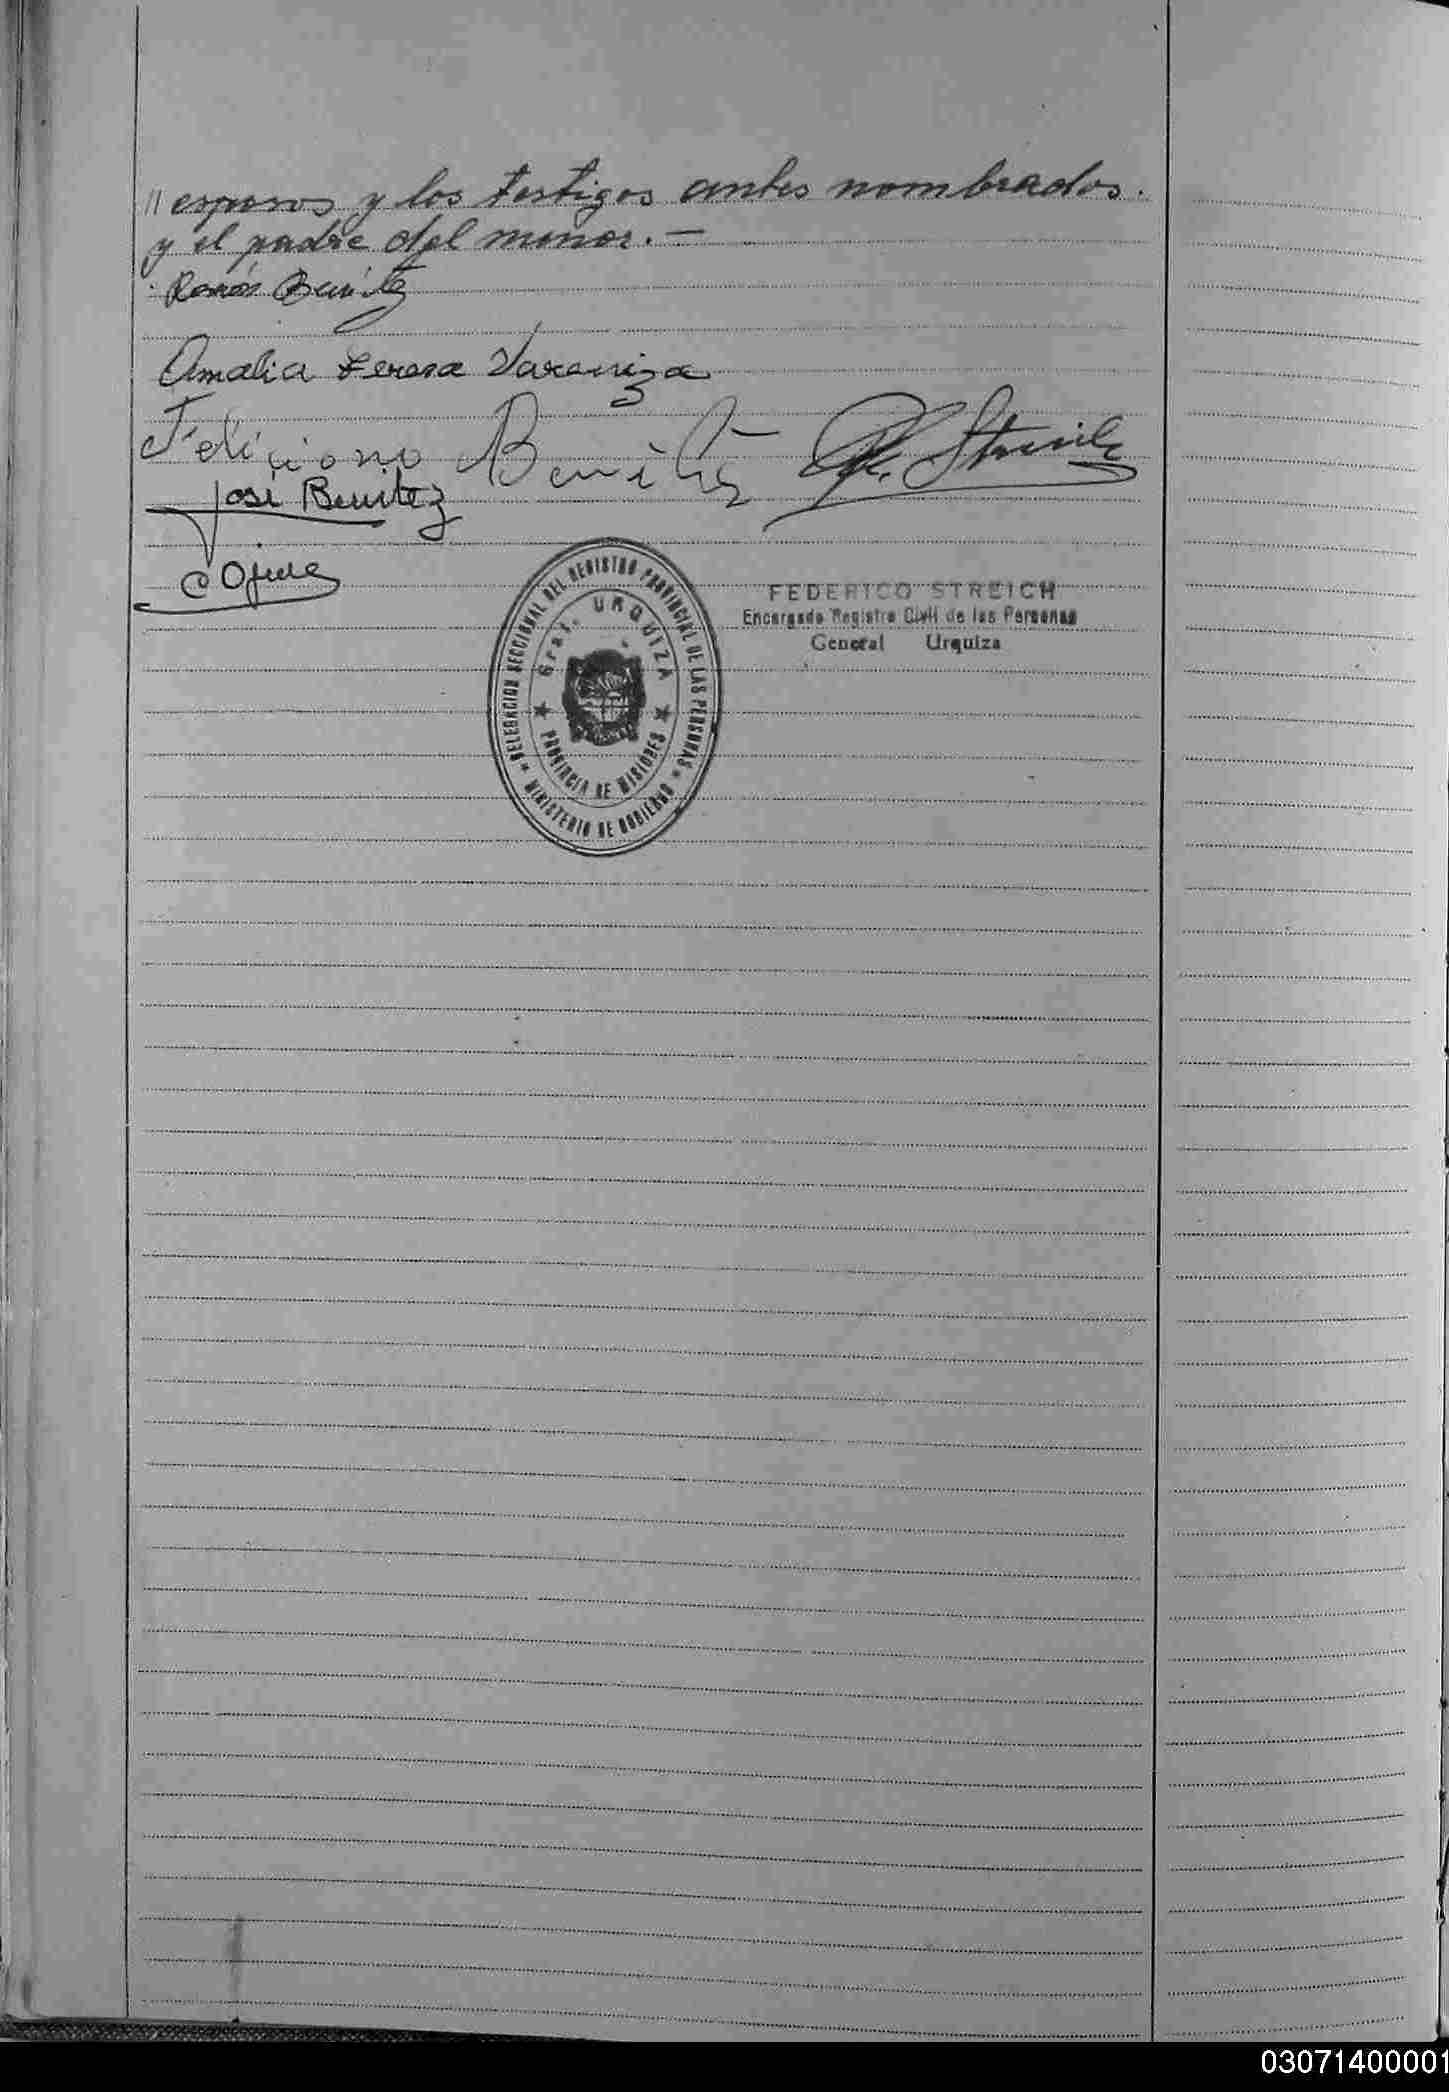 // esposos y los testigos antes nombrados.
y el padre del menor. —
Ramón Benítez
Amalia Teresa
Feliciano Benítez
F. Streich
José Benitez
C Ojeda
DELEGACION SECCIONAL DEL REGISTRO PROVINCIAL DE LAS PERSONAS
* MINISTERIO DE GOBIERNO *
Gral. URQUIZA
★ PROVINCIA DE MISIONES ★
FEDERICO STREICH
Encargado Registro Civil de las Personas
General Urquiza
03071400001